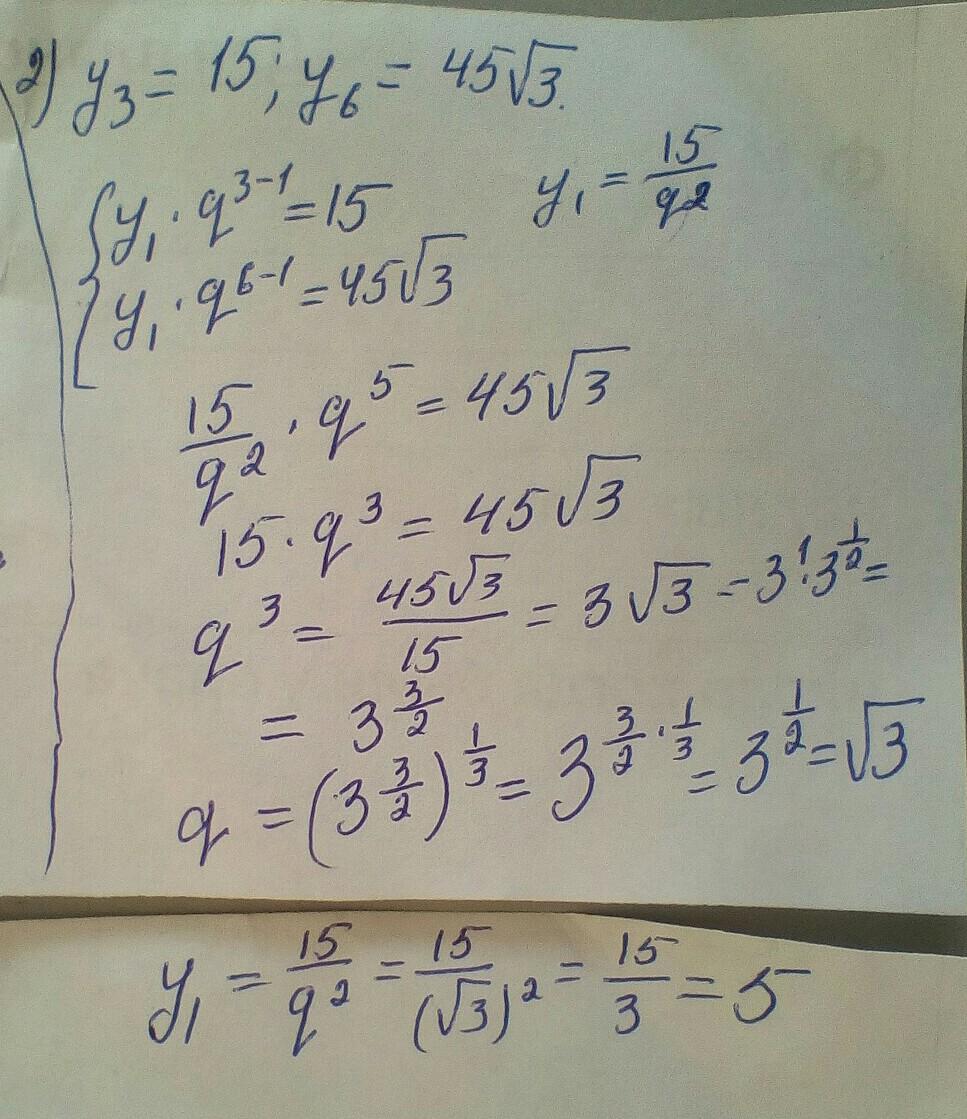 2) y₃ = 15; y₆ = 45√3.
{ y₁ · q³⁻¹ = 15    y₁ = 15/q²
y₁ · q⁶⁻¹ = 45√3
15/q² · q⁵ = 45√3
15 · q³ = 45√3
q³ = 45√3/15 = 3√3 = 3¹ · 3^(1/2) =
= 3^(3/2)
q = (3^(3/2))^(1/3) = 3^(3/2 · 1/3) = 3^(1/2) = √3
y₁ = 15/q² = 15/(√3)² = 15/3 = 5